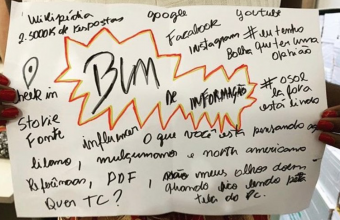 Wikipédia google youtube
2.5000K de respostas Facebook
Instagram # eu tenho
Bolha que tem uma
opinião
BUM
DE INFORMAÇÃO
# o sol
lá fora
está lindo
check in
Storie
Fonte influencer O que você está pensando
islamo, mulçumanos e north americano
Referências, PDF, meus olhos doem
quando lendo pela
Quer TC? tela do PC.